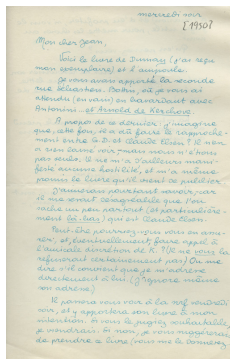 mercredi soir
[1950]
Mon cher Jean,
Voici le livre de Jimmy (j'ai reçu
mon exemplaire) et l'ampoule.
Je vous avais apporté la seconde
rue Sébastien Bottin, où je vous ai
attendu (en vain) en bavardant avec
Antonini... et Arnold de Kerchove.
A propos de ce dernier j'imagine
que, cette fois, il a dû faire le rapproche-
ment entre le D. et Claude Elsen! Il n'en
a rien laissé voir mais nous n'étions
pas seuls. Il ne m'a d'ailleurs mani-
festé aucune hostilité, et m'a même
promis le livre qu'il vient de publier.
J'aimerais pourtant savoir, car
il me serait désagréable que l'on
sache un peu partout (et particulière-
ment là-bas) qui est Claude Elsen.
Peut-être pourriez-vous vous en assu-
rer, et, éventuellement, faire appel à
l'amicale discrétion de K. ? (Il ne vous la
refuserait certainement pas) Ou me
dire s'il convient que je m'adresse
directement à lui. (J'ignore même
son adresse)
Il passera vous voir à la nrf vendredi
soir, et y apportera son livre à mon
intention. Si vous le jugez souhaitable,
je viendrai. Si non, je vous
de prendre ce livre (vous me le donnerez